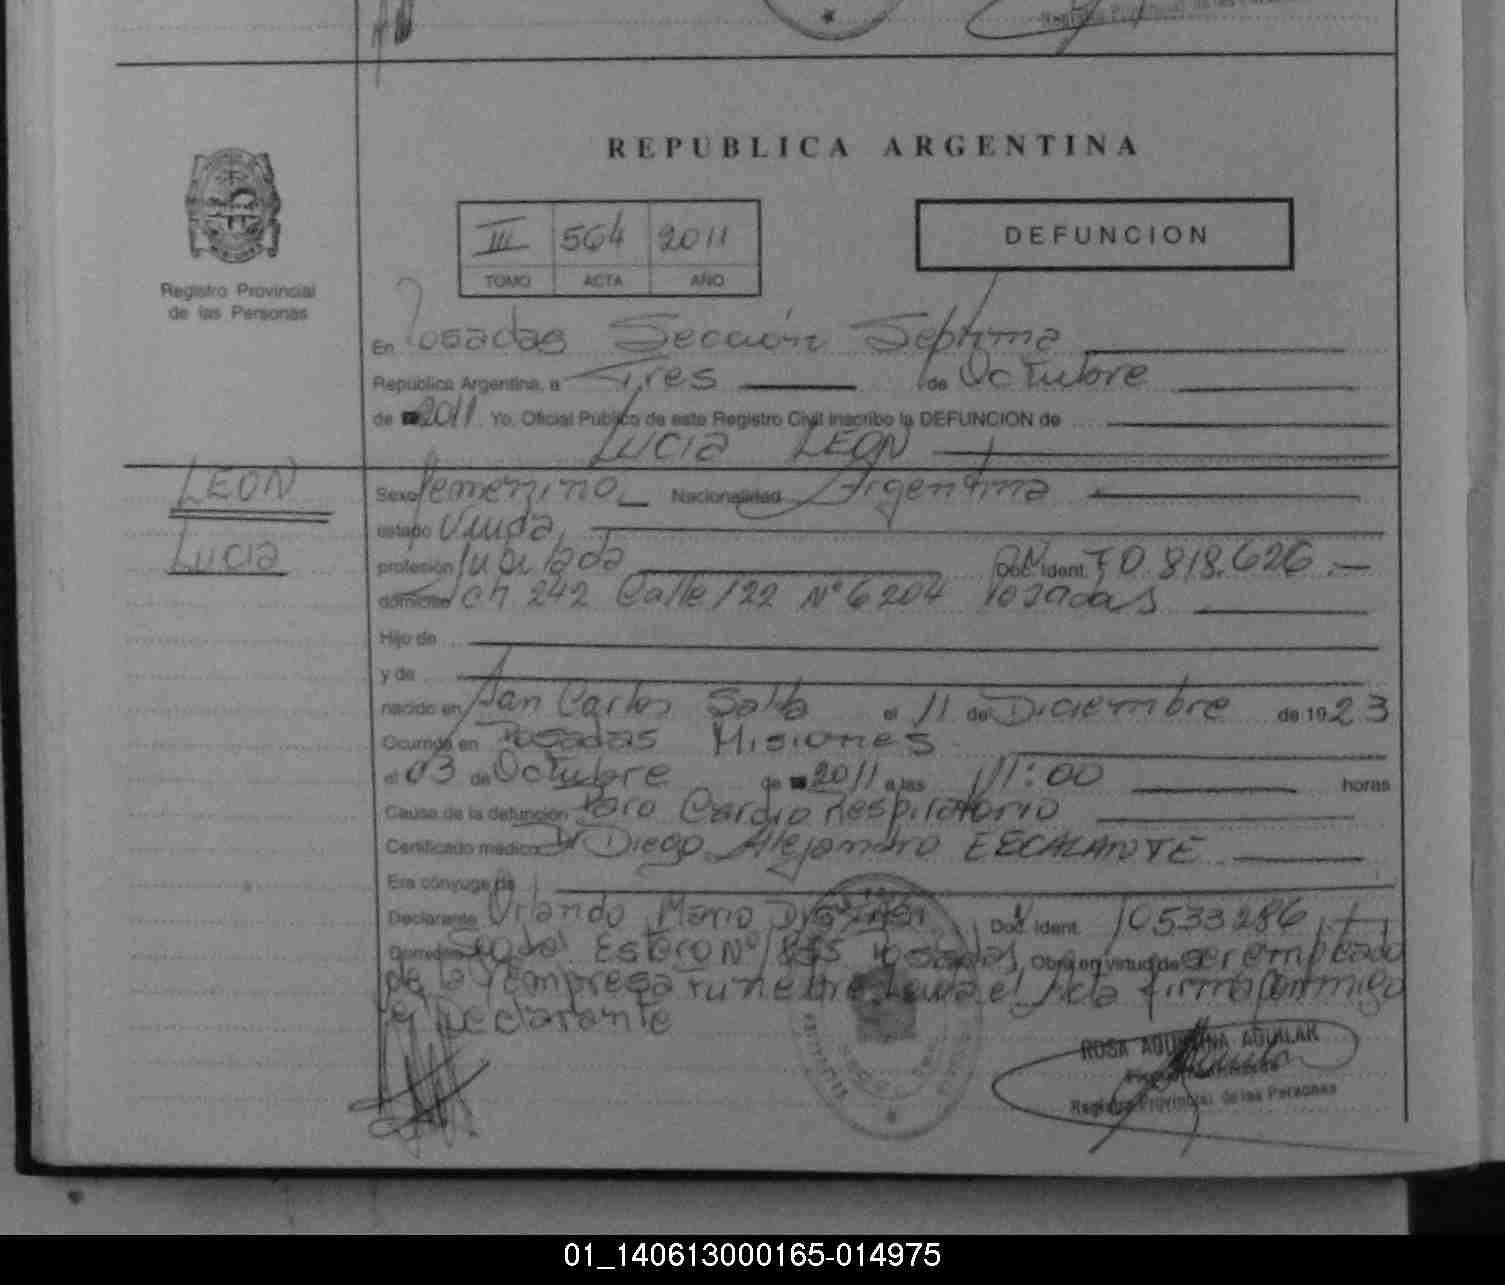 Registro Provincial de las Personas
REPUBLICA ARGENTINA
III 564 2011
TOMO ACTA AÑO
DEFUNCION
Registro Provincial
de las Personas
En Posadas Sección Séptima
República Argentina, a Tres de Octubre
de 2011 Yo, Oficial Público de este Registro Civil inscribo la DEFUNCION de
Lucia LEON
LEON
Lucia
Sexo femenino Nacionalidad Argentina
estado Viuda
profesión Jubilada Doc. Ident. 10.818.626
domicilio Ch 242 Calle 122 Nº 6204 Posadas
Hijo de
y de
nacido en San Carlos Salta el 11 de Diciembre de 1923
Ocurrida en Posadas Misiones
el 03 de Octubre de 2011 a las 11:00 horas
Causa de la defunción Paro Cardio Respiratorio
Certificado médico Dr Diego Alejandro ESCALANTE
Era cónyuge de
Declarante Orlando Mario Doc. Ident. 10533286
Domicilio Sgo del Estero Nº 1835 Posadas Obra en virtud de ser empleado
de la Empresa Funebre Leida el Acta firma conmigo
el Declarante
ROSA AGUSTINA AGUILAR
Registro Provincial de las Personas
01_140613000165-014975